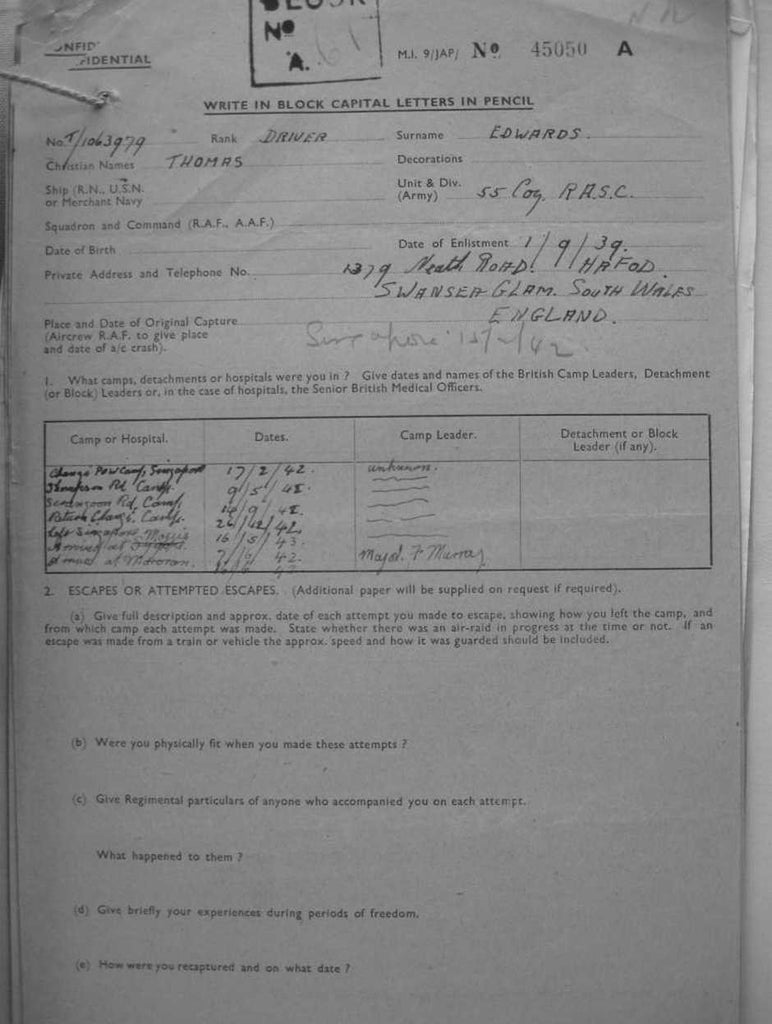 BLOCK
Nº
A.
CONFIDENTIAL
M.I. 9/JAP/ Nº 45050 A
WRITE IN BLOCK CAPITAL LETTERS IN PENCIL
No. T/1063979 Rank DRIVER Surname EDWARDS.
Christian Names THOMAS Decorations
Ship (R.N., U.S.N. or Merchant Navy Unit & Div. (Army) 55 Coy. R.A.S.C.
Squadron and Command (R.A.F., A.A.F.)
Date of Birth Date of Enlistment 1/9/39.
Private Address and Telephone No. 1379 Neath ROAD. HAFOD.
SWANSEA GLAM. SOUTH WALES
ENGLAND.
Place and Date of Original Capture
(Aircrew R.A.F. to give place
and date of a/c crash). Singapore 15/2/42.
1. What camps, detachments or hospitals were you in ? Give dates and names of the British Camp Leaders, Detachment
(or Block) Leaders or, in the case of hospitals, the Senior British Medical Officers.
Camp or Hospital. Dates. Camp Leader. Detachment or Block
Leader (if any).
Changi POW Camp, Singapore 17/2/42. unknown.
Rd Camp. 9/5/42.
Serangoon Rd. Camp. 9/42.
Camp. 42.
Left Singapore 16/5/43.
Arrived at
Arrived at Major. F Murray
2. ESCAPES OR ATTEMPTED ESCAPES. (Additional paper will be supplied on request if required).
(a) Give full description and approx. date of each attempt you made to escape, showing how you left the camp, and
from which camp each attempt was made. State whether there was an air-raid in progress at the time or not. If an
escape was made from a train or vehicle the approx. speed and how it was guarded should be included.
(b) Were you physically fit when you made these attempts ?
(c) Give Regimental particulars of anyone who accompanied you on each attempt.
What happened to them ?
(d) Give briefly your experiences during periods of freedom.
(e) How were you recaptured and on what date ?